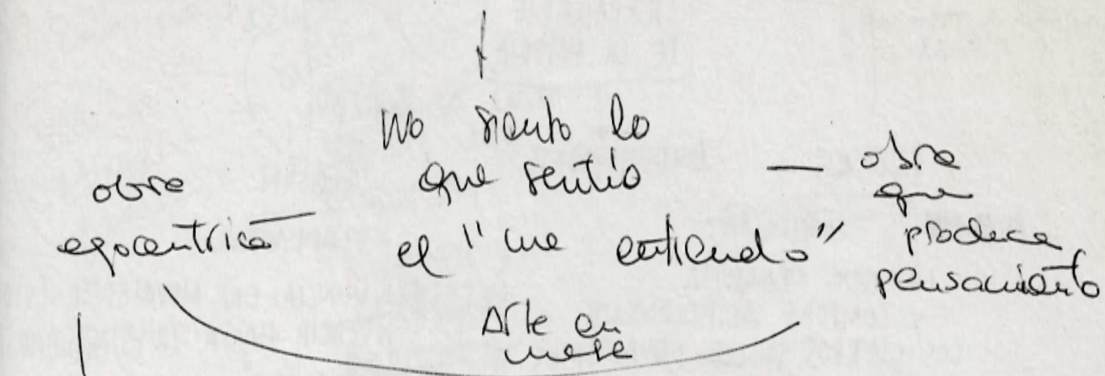 no siento lo
que sentió
el "me entiendo"
obra
egocentrica
obra
que
produce
pensamiento
Arte en